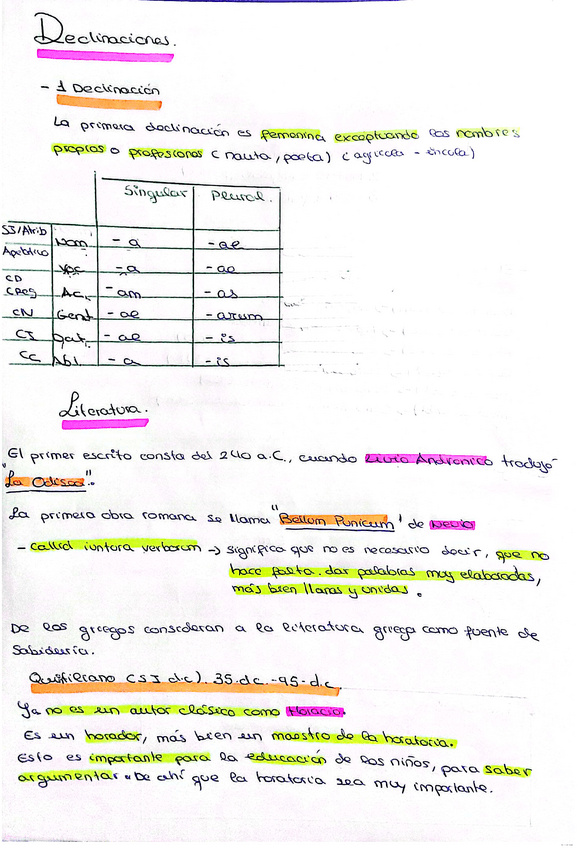 Declinaciones.
- 1 Declinación
La primera declinación es femenina exceptuando los nombres
propios o profesiones (nauta, poeta) (agricola - incola)
Singular Plural.
SJ/Atrib Nom - a - ae
Apelativo Voc - a - ae
CD
CReg Ac. - am - as
CN Genit - ae - arum
CI Dat. - ae - is
CC Abl. - a - is
Literatura.
El primer escrito consta del 240 a.C., cuando Livio Andronico tradujo
"La Odisea".
La primera obra romana se llama "Bellum Punicum" de Nevio
- callid iuntora verborum -> significa que no es necesario decir, que no
hace falta. dar palabras muy elaboradas,
más bien llanas y unidas.
De los griegos consideran a la literatura griega como fuente de
Sabiduría.
Quintiliano (SI d.c). 35.d.c. -95-d.c.
Ya no es un autor clásico como Horacio.
Es un horador, más bien un maestro de la horatoria.
Esto es importante para la educación de los niños, para saber
argumentar. De ahí que la horatoria sea muy importante.